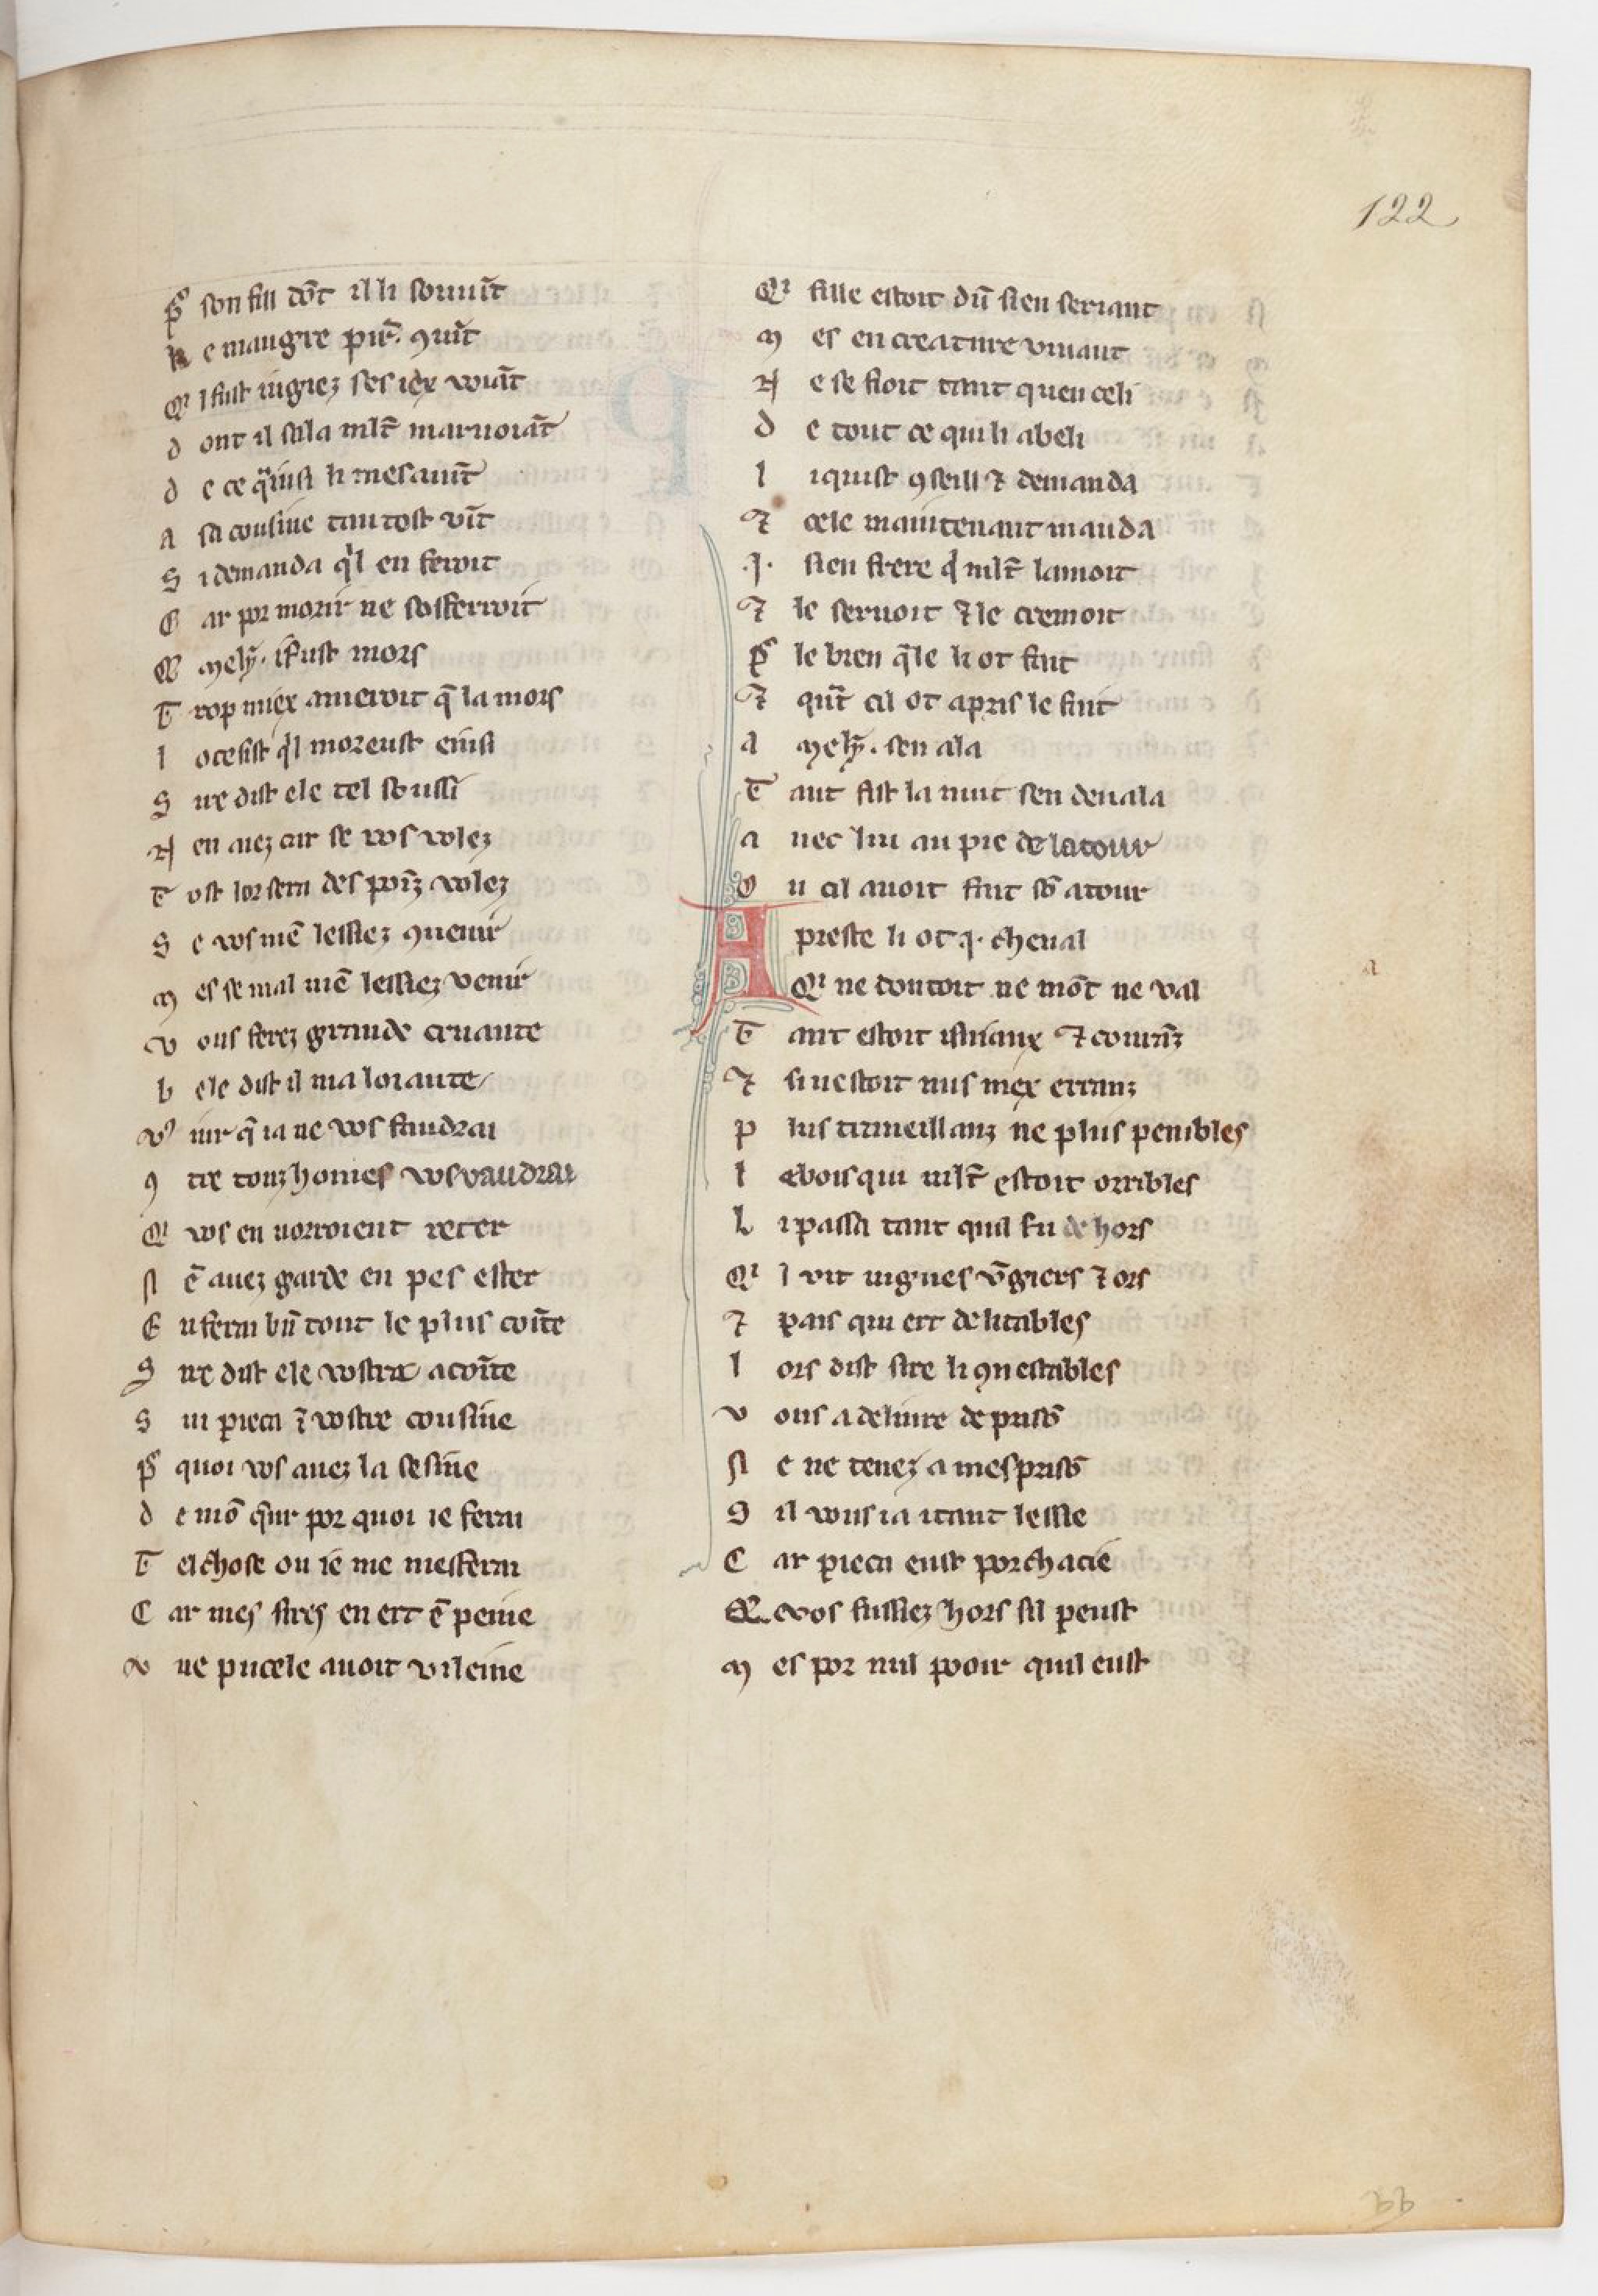 122
Pͦ son fill dōt il li souuīt
N e maugre pit̄. ꝯuīt
Qͥ l fust iugiez ses iex voiāt
d ont il sala ml̄t maruoiāt
d e ce q̄insi li mesauīt
a sa cousine tantost vīt
S i demanda qͥl en feroit
C ar por morir ne sosferroit
Q̄ meh̄. i fust mors
T rop miex ameroit q̄ la mors
l ocesist qͥl moreust einsi
S ire dist ele tel soussi
N en aiez car se vos volez
T ost lor sera des poīz volez
S e vos mē lessiez ꝯuenir
m es se mal mē lessiez venir
v ous ferez grande cruaute
b ele dist il ma loiaute
vͦ iur q̄ ia ne vos faudrai
ꝯ tre touz homes vos vaudrai
Qͥ vos en uorroient reter
N ē auez garde en pes ester
E n ferai bn̄ tout le plus cōite
S ire dist ele vostre acoīte
S ui pieca ⁊ vostre cousine
Pͦ quoi vos auez la sesine
d e mō cuer por quoi ie ferai
T el chose ou ie me mesferai
C ar mes sires en ert ē peine
v ne pucele auoit vileine
Qͥ fille estoit dū sien seriant
m es en creature viuant
N e se fioit tant quen celi
d e tout ce qui li abeli
l i quist ꝯseill ⁊ demanda
⁊ cele maintenant manda
.j. sien frere qͥ ml̄t lamoit
⁊ le seruoit ⁊ le cremoit
Pͦ le bien q̄le li ot fait
⁊ qūt cil ot apris le fait
a meh̄. sen ala
T ant fist la nuit sen deuala
a uec lui au pie de la tour
o u cil auoit fait sō atour
A preste li ot .j. cheual
Qͥ ne doutoit ne mōt ne val
T ant estoit isniaux ⁊ courāz
⁊ si nestoit nus miex erranz
p lus traueillanz ne plus penibles
l e bois qui ml̄t estoit orribles
L i passa tant quil fu de hors
Qͥ l vit uignes v̄giers ⁊ ors
⁊ pais qui ert delitables
l ors dist sire li ꝯnestables
v ous a deliure de prisō
N e ne tenez a mesprisō
S il vous ia itant lessie
C ar pieca eust porchacie
Q̄ vos fussiez hors sil peust
m es por nul pooir quil eust